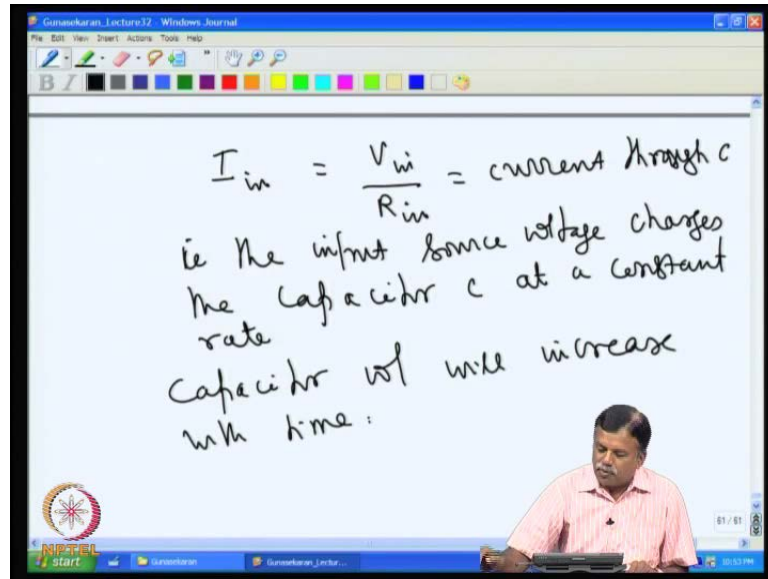 Gunasekaran_Lecture32 - Windows Journal
File Edit View Insert Actions Tools Help
B I
I in = V in / R in = current through c
ie the input source voltage charges
the capacitor c at a constant
rate
Capacitor vol will increase
with time.
61 / 61
NPTEL
start Gunasekaran Gunasekaran_Lectur... 10:53 PM